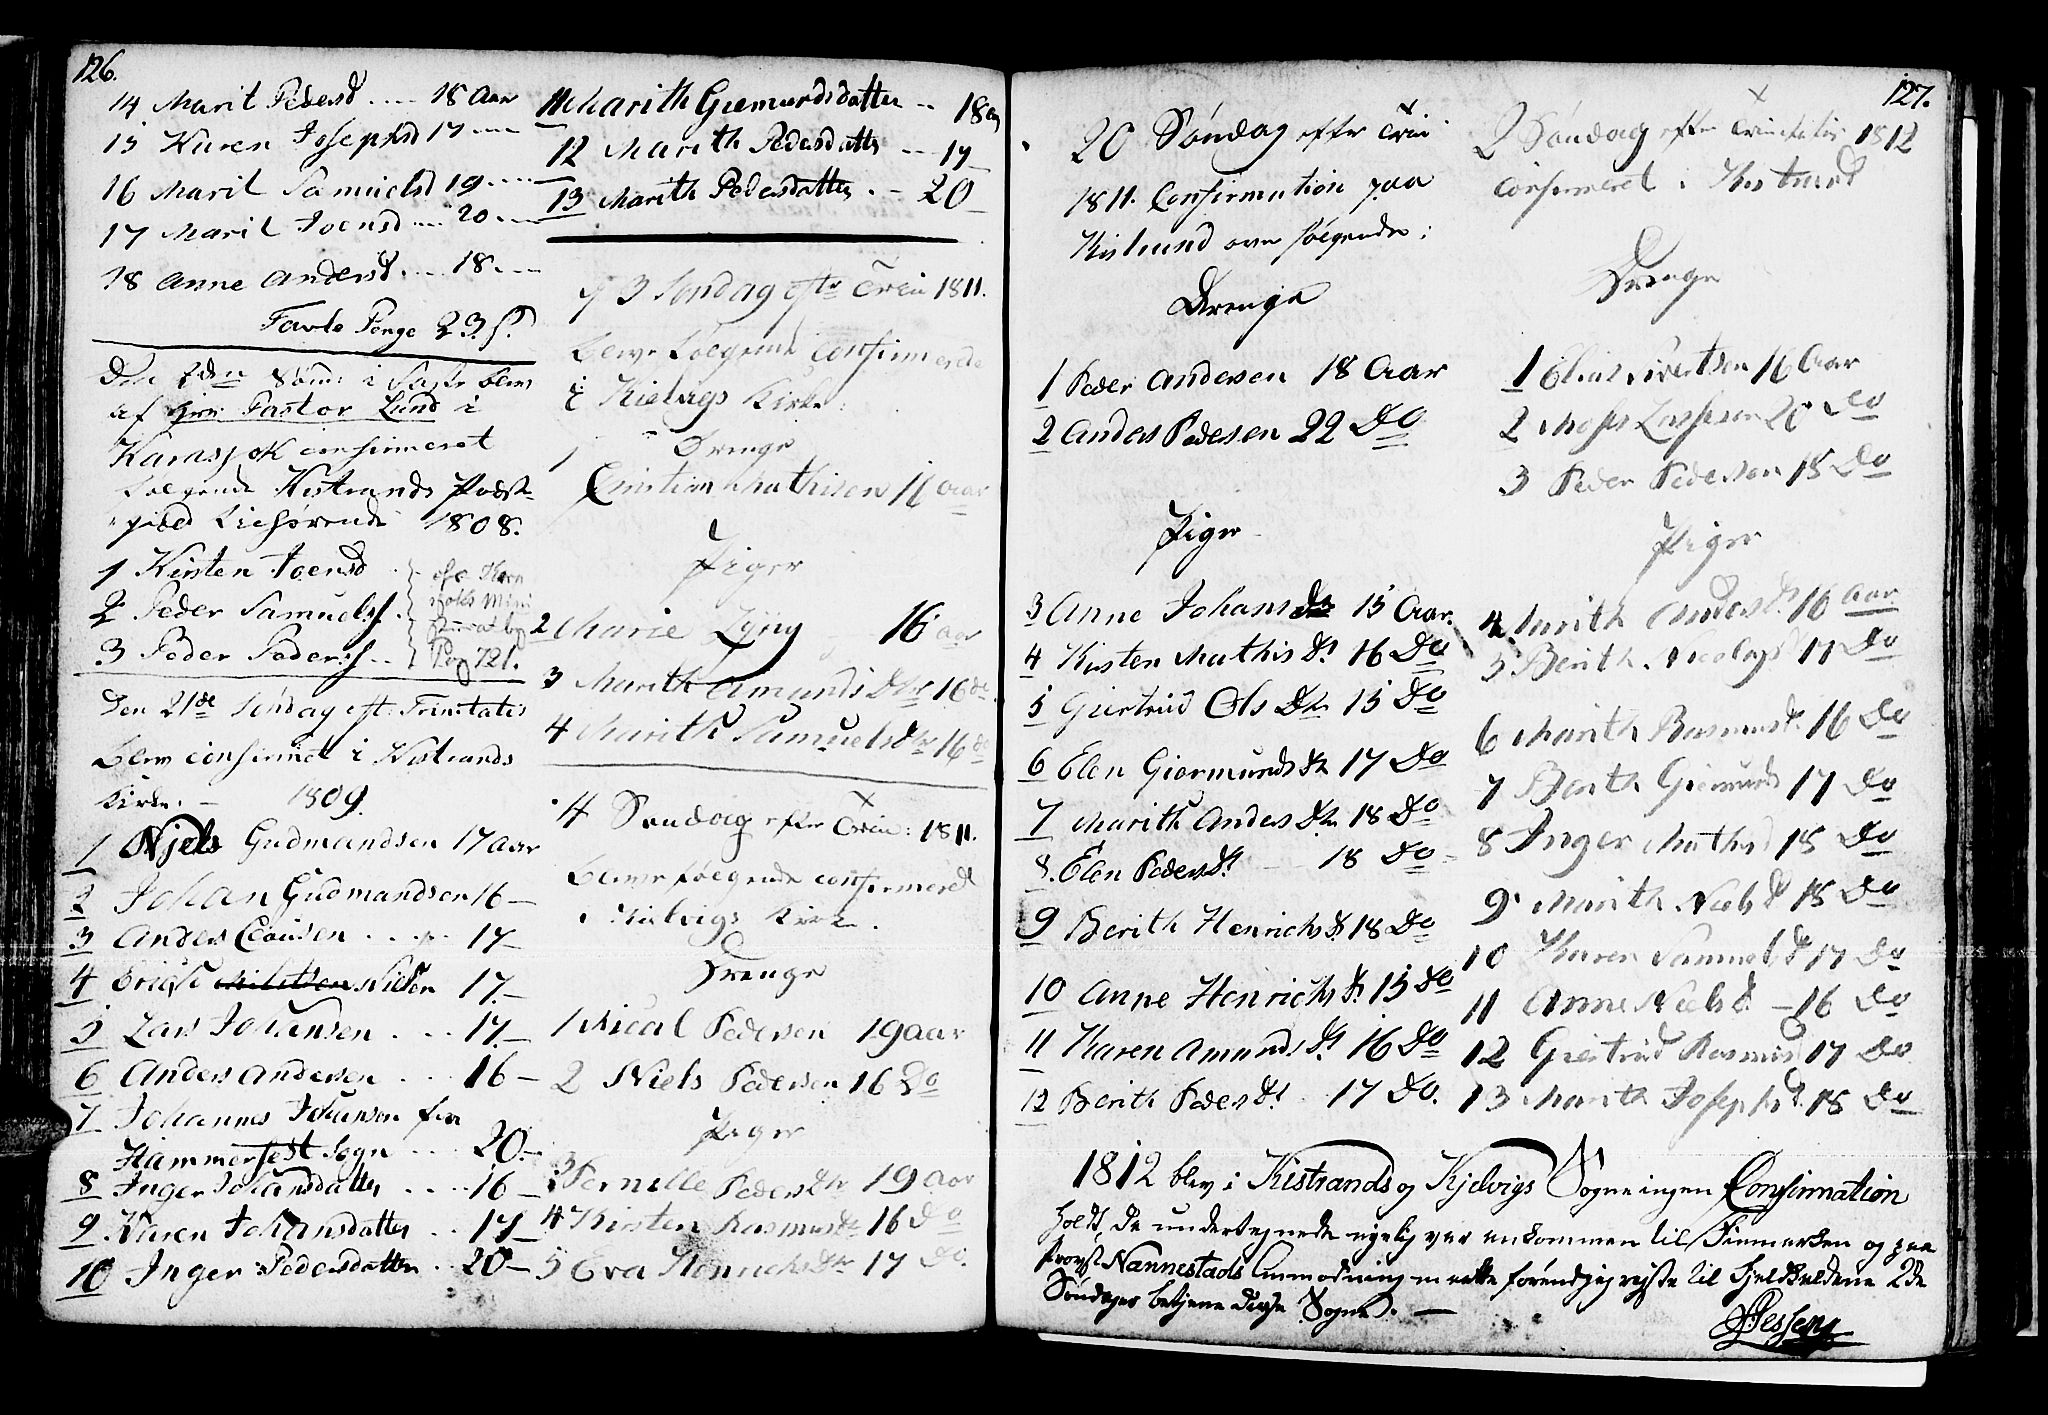 126.
14 Marit Pedersd .... 18 Aar
15 Karen Josephsd 17 ----
16 Marit Samuelsd 19 ----
17 Marit Joensd ---- 20 ----
18 Anne Andersd. --- 18 ---
Tavle Penge 23 s.
Den 2den Sønd: i Faste blev
af Hrr: Pastor Lund i
Karasjok confirmeret
følgende Kistrands Præste-
gield tilhørende 1808.
1 Kirsten Joensd
2 Peder Samuelss.
3 Peder Pederss..
Pag 721.
Den 21de Søndag eft: Trinitatis
blev confirmet i Kistrands
Kirke: – 1809.
1 Njels Gudmandsen 17 aar
2 Johan Gudmandsen 16 –
3 Anders Clausen .... 17 –
4 Nilsen 17. –
5 Lars Johansen ... 17. –
6 Anders Andersen ... 16 –
7 Johannes Johansen fra
Hammerfest Sogn ... 20. –
8 Inger Johansdatter .... 16 –
9 Karen Johansdatter .. 17 –
10 Inger Pedersdatter .. 20 –
11 Marith Giemundsdatter .. 18
12 Marith Pedersdatter --- 17
13 Marith Pedersdatter. – 20 –
3 Søndag eftr Trin 1811.
blev følgende Confirmerede
i Kielvigs Kirke:
Drenge
1 Christian Mathisen 16 aar
Piger
2 Marie 16 aar
3 Marith Amunds Dtr 16 do
4 Marith Samuels Dtr 16 do
4 Søndag efter Trin: 1811.
bleve følgende confirmered
i Kielvigs Kirke.
Drenge
1 Nicol Pedersen 19 aar
2 Niels Pedersen 16 Do
Piger
3 Pernille Peders Dtr 19 Aar
4 Kirsten Rasmusdtr 16 Do
5 Eva Henrichsdtr 17 Do.
127.
20 Søndag efter Trin
1811. Confirmation paa
Kistrand over følgende:
Drenge
1 Peder Andersen 18 Aar
2 Anders Pedersen 22 Do
Piger
3 Anne Johans dr 15 Aar
4 Kirsten Mathis Dr 16 Do
5 Giertrud Ols Dr 15 Do
6 Elen Giermunds dr 17 Do
7 Marith Anders Dr 18 Do
8. Elen Peders Dr 18 Do
9 Berith Henrichs D. 18 Do
10 Anne Henrichs D. 15 Do
11 Karen Amunds Dr 16 Do
12 Berith Peders Dr. 17 Do.
2 Søndag efter Trinitatis 1812
Confirmeret i Kistrand
Drenge
1 Elias Sivertsen 16 Aar
2 Moses Larssen 20 Do
3 Peder Pedersen 18 Do
Piger
4 Marith Anders D. 16 Aar
5 Berith Nicolajsd 17 Do
6 Marith Rasmusd. 16 Do
7 Berith Giermunds 17 Do
8 Inger Mathisd 18 Do
9 Marith Niels d 18 Do
10 Karen Samuels d 17 Do
11 Anne Niels d. – 16 Do
12 Giertrud Rasmusd 17 Do
13 Marith Josephsd. 18 Do
1812 blev i Kistrands og Kjelvigs Sogne ingen Confirmation
holdt, da undertegnede nylig var ankommen til Finmarken og paa
Provst Nannestads Anmodning maatte fornødigreyse til hjeldbuldene 2de
Søndager betjene disse Sogne. —
Jessen